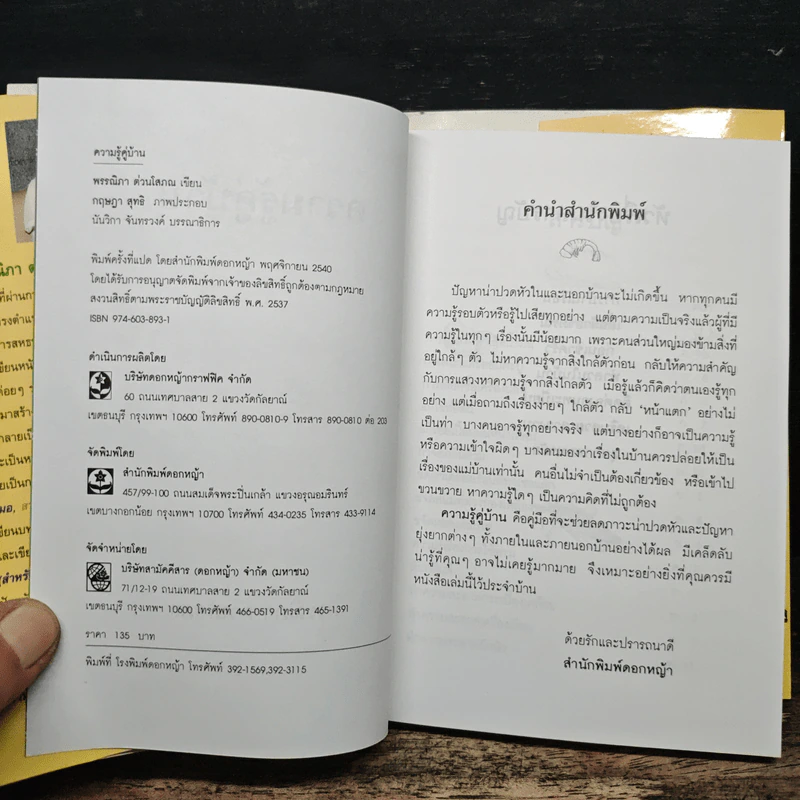 ความรู้คู่บ้าน
พรรณิภา ต่วนโสภณ เขียน
กฤษฎา สุทธิ ภาพประกอบ
นันวิกา จันทรวงศ์ บรรณาธิการ
พิมพ์ครั้งที่แปด โดยสำนักพิมพ์ดอกหญ้า พฤศจิกายน 2540
โดยได้รับการอนุญาตจัดพิมพ์จากเจ้าของลิขสิทธิ์ถูกต้องตามกฎหมาย
สงวนสิทธิ์ตามพระราชบัญญัติลิขสิทธิ์ พ.ศ. 2537
ISBN 974-603-893-1
ดำเนินการผลิตโดย
บริษัทดอกหญ้ากราฟฟิค จำกัด
60 ถนนเทศบาลสาย 2 แขวงวัดกัลยาณ์
เขตธนบุรี กรุงเทพฯ 10600 โทรศัพท์ 890-0810-9 โทรสาร 890-0810 ต่อ 203
จัดพิมพ์โดย
สำนักพิมพ์ดอกหญ้า
457/99-100 ถนนสมเด็จพระปิ่นเกล้า แขวงอรุณอมรินทร์
เขตบางกอกน้อย กรุงเทพฯ 10700 โทรศัพท์ 434-0235 โทรสาร 433-9114
จัดจำหน่ายโดย
บริษัทสามัคคีสาร (ดอกหญ้า) จำกัด (มหาชน)
71/12-19 ถนนเทศบาลสาย 2 แขวงวัดกัลยาณ์
เขตธนบุรี กรุงเทพฯ 10600 โทรศัพท์ 466-0519 โทรสาร 465-1391
ราคา 135 บาท
พิมพ์ที่ โรงพิมพ์ดอกหญ้า โทรศัพท์ 392-1569,392-3115
คำนำสำนักพิมพ์
ปัญหาน่าปวดหัวในและนอกบ้านจะไม่เกิดขึ้น หากทุกคนมี
ความรู้รอบตัวหรือรู้ไปเสียทุกอย่าง แต่ตามความเป็นจริงแล้วผู้ที่มี
ความรู้ในทุกๆ เรื่องนั้นมีน้อยมาก เพราะคนส่วนใหญ่มองข้ามสิ่งที่
อยู่ใกล้ๆ ตัว ไม่หาความรู้จากสิ่งใกล้ตัวก่อน กลับให้ความสำคัญ
กับการแสวงหาความรู้จากสิ่งไกลตัว เมื่อรู้แล้วก็คิดว่าตนเองรู้ทุก
อย่าง แต่เมื่อถามถึงเรื่องง่ายๆ ใกล้ตัว กลับ 'หน้าแตก' อย่างไม่
เป็นท่า บางคนอาจรู้ทุกอย่างจริง แต่บางอย่างก็อาจเป็นความรู้
หรือความเข้าใจผิดๆ บางคนมองว่าเรื่องในบ้านควรปล่อยให้เป็น
เรื่องของแม่บ้านเท่านั้น คนอื่นไม่จำเป็นต้องเกี่ยวข้อง หรือเข้าไป
ขวนขวาย หาความรู้ใดๆ เป็นความคิดที่ไม่ถูกต้อง
ความรู้คู่บ้าน คือคู่มือที่จะช่วยลดภาวะน่าปวดหัวและปัญหา
ยุ่งยากต่างๆ ทั้งภายในและภายนอกบ้านอย่างได้ผล มีเคล็ดลับ
น่ารู้ที่คุณๆ อาจไม่เคยรู้มากมาย จึงเหมาะอย่างยิ่งที่คุณควรมี
หนังสือเล่มนี้ไว้ประจำบ้าน
ด้วยรักและปรารถนาดี
สำนักพิมพ์ดอกหญ้า